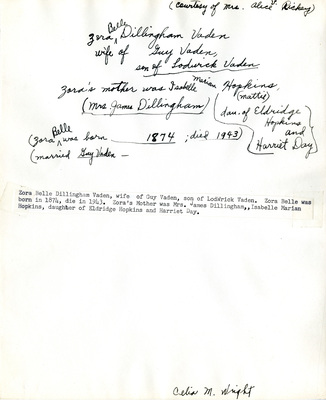 (Courtesy of Mrs. Alice V. Dickey)
Zora Belle Dillingham Vaden
wife of Guy Vaden,
son of Lodwick Vaden
Zora's mother was Isabelle Marian Hopkins,
(Mrs James Dillingham) (mattie)
dau. of Eldridge
Hopkins
and
Harriet Day)
(Zora Belle was born 1874; died 1943)
(married Guy Vaden —
Zora Belle Dillingham Vaden, wife of Guy Vaden, son of Lodwrick Vaden. Zora Belle was
born in 1874, die in 1943. Zora's Mother was Mrs. James Dillingham,,Isabelle Marian
Hopkins, daughter of Eldridge Hopkins and Harriet Day.
Celia M. Wright